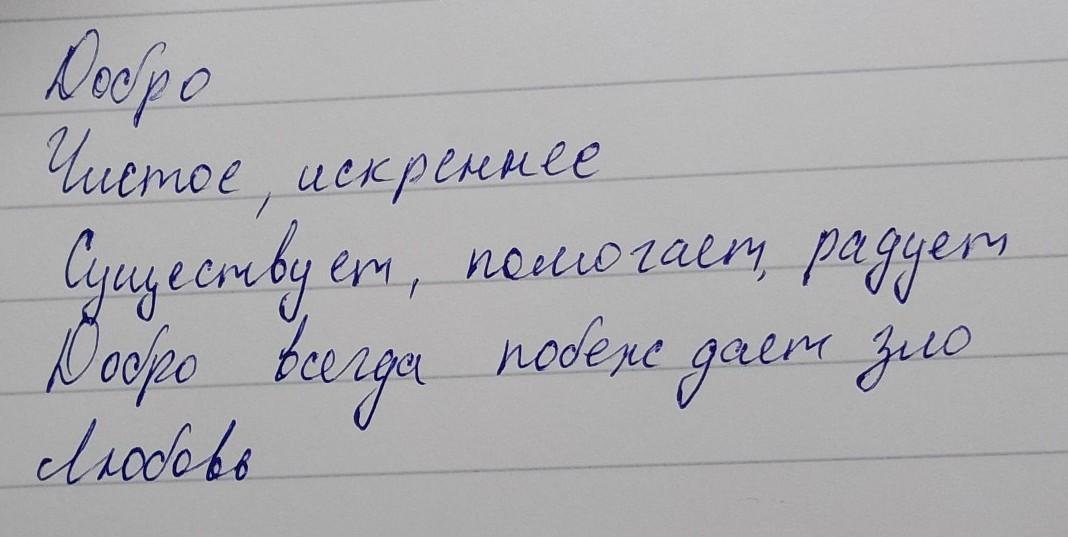 Добро
Чистое, искреннее
Существует, помогает, радует
Добро всегда побеждает зло
Любовь